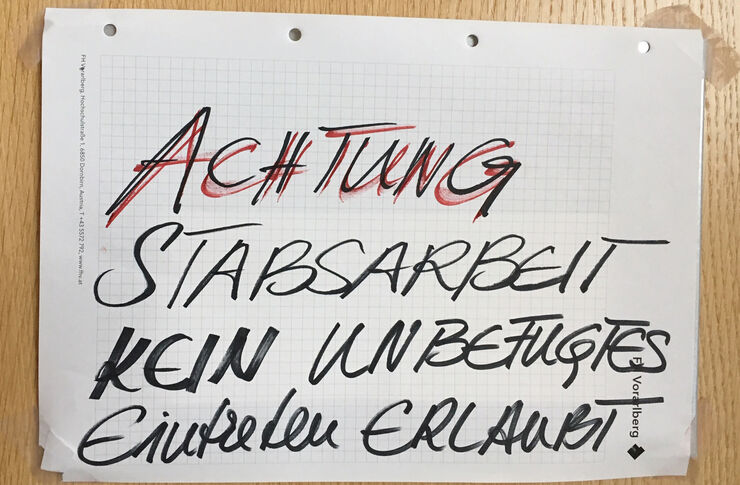 ACHTUNG
STABSARBEIT
KEIN UNBEFUGTES
Eintreten ERLAUBT
FH Vorarlberg, Hochschulstraße 1, 6850 Dornbirn, Austria, T +43 5572 792, www.fhv.at
FH Vorarlberg